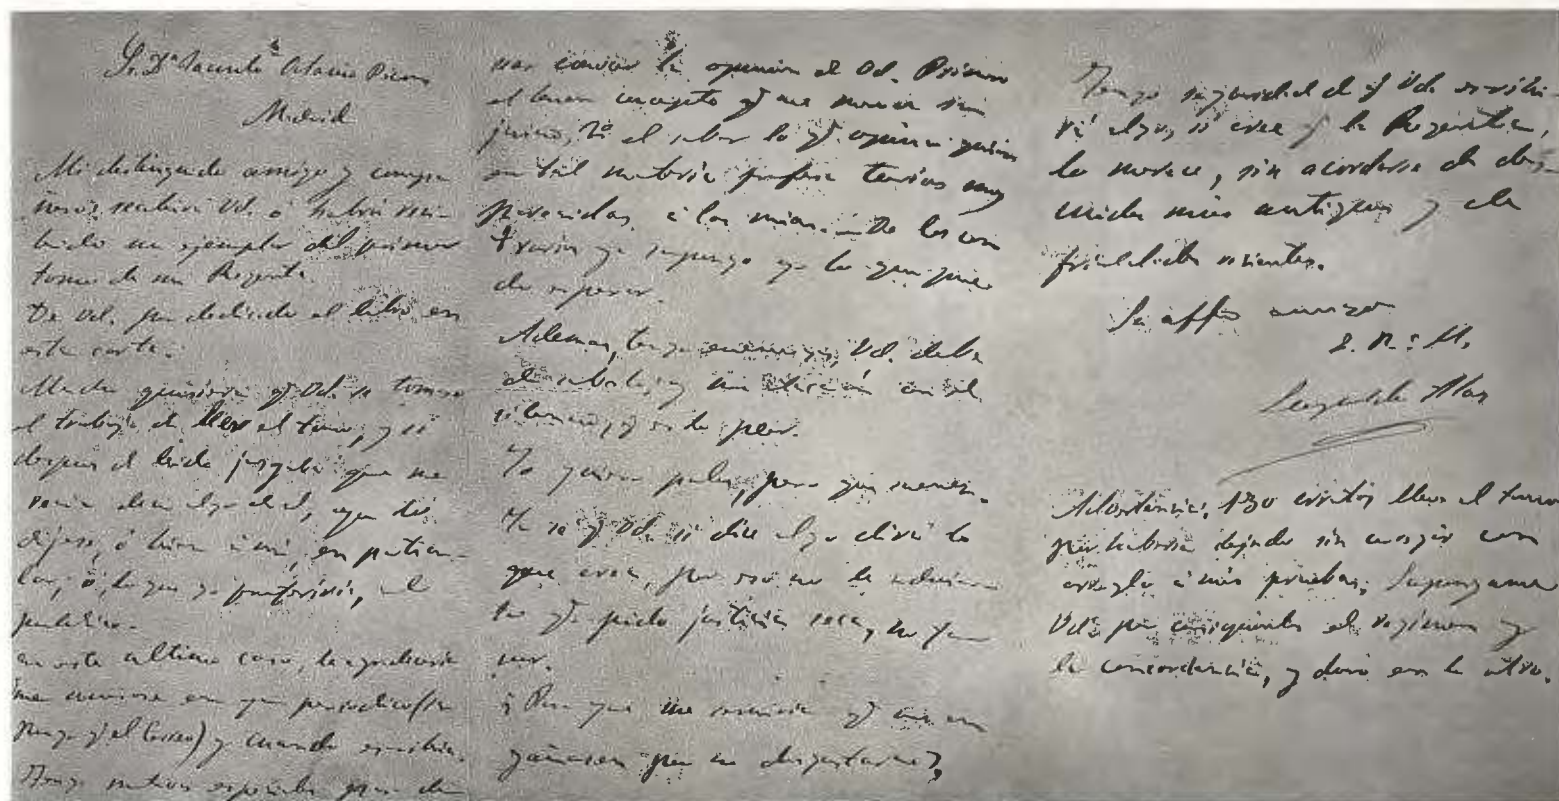 Sr. Dn Jacinto Octavio Picón
Madrid
Mi distinguido amigo y compa
ñero: recibirá Vd. ó habrá reci-
bido un ejemplar del primer
tomo de mi Regenta.
De Vd. por dedicado el libro en
esta carta.
Mucho quisiera qe Vd. se tomase
el trabajo de leer el tomo, y si
después de leido juzgaba que me
decir algo de él, que lo
dijese, ó bien á mi, en particu-
lar, ó, lo que yo preferiría, al
público.
en este ultimo caso, le agradecería
me avisase en que periodico (su
pongo qe el Correo) y cuando escribia.
Tengo motivos especiales para de
sear conocer la opinion de Vd. Primero
el buen concepto qe me merece su
juicio, 2º el saber lo qe opina quien
en tal materia profesa teorias muy
parecidas á las mias. De los con
trarios ya supongo yo lo que pue
do esperar.
Ademas, tengo enemigos, Vd. debe
de saberlo, y me atacan con el
silencio, qe es lo peor.
Yo quiero palos, pero que suenen.
Ya sé qe Vd. si dice algo dirá lo
que crea, por eso no le
to qe pido justicia seca, y no fa
vor.
¿Para que me serviria qe me en
gañasen por no disgustarme?
Tengo seguridad de qe Vd. escribi-
rá algo, si cree qe la Regenta,
lo merece, sin acordarse de des-
cuidos mios antiguos y de
frialdades recientes.
Su affmo amigo
Leopoldo Alas
Advertencia: 130 erratas lleva el tomo
por haberse dejado sin corregir con
arreglo á mis pruebas. Supongame
Vd. por consiguiente el regimen y
la concordancia, y